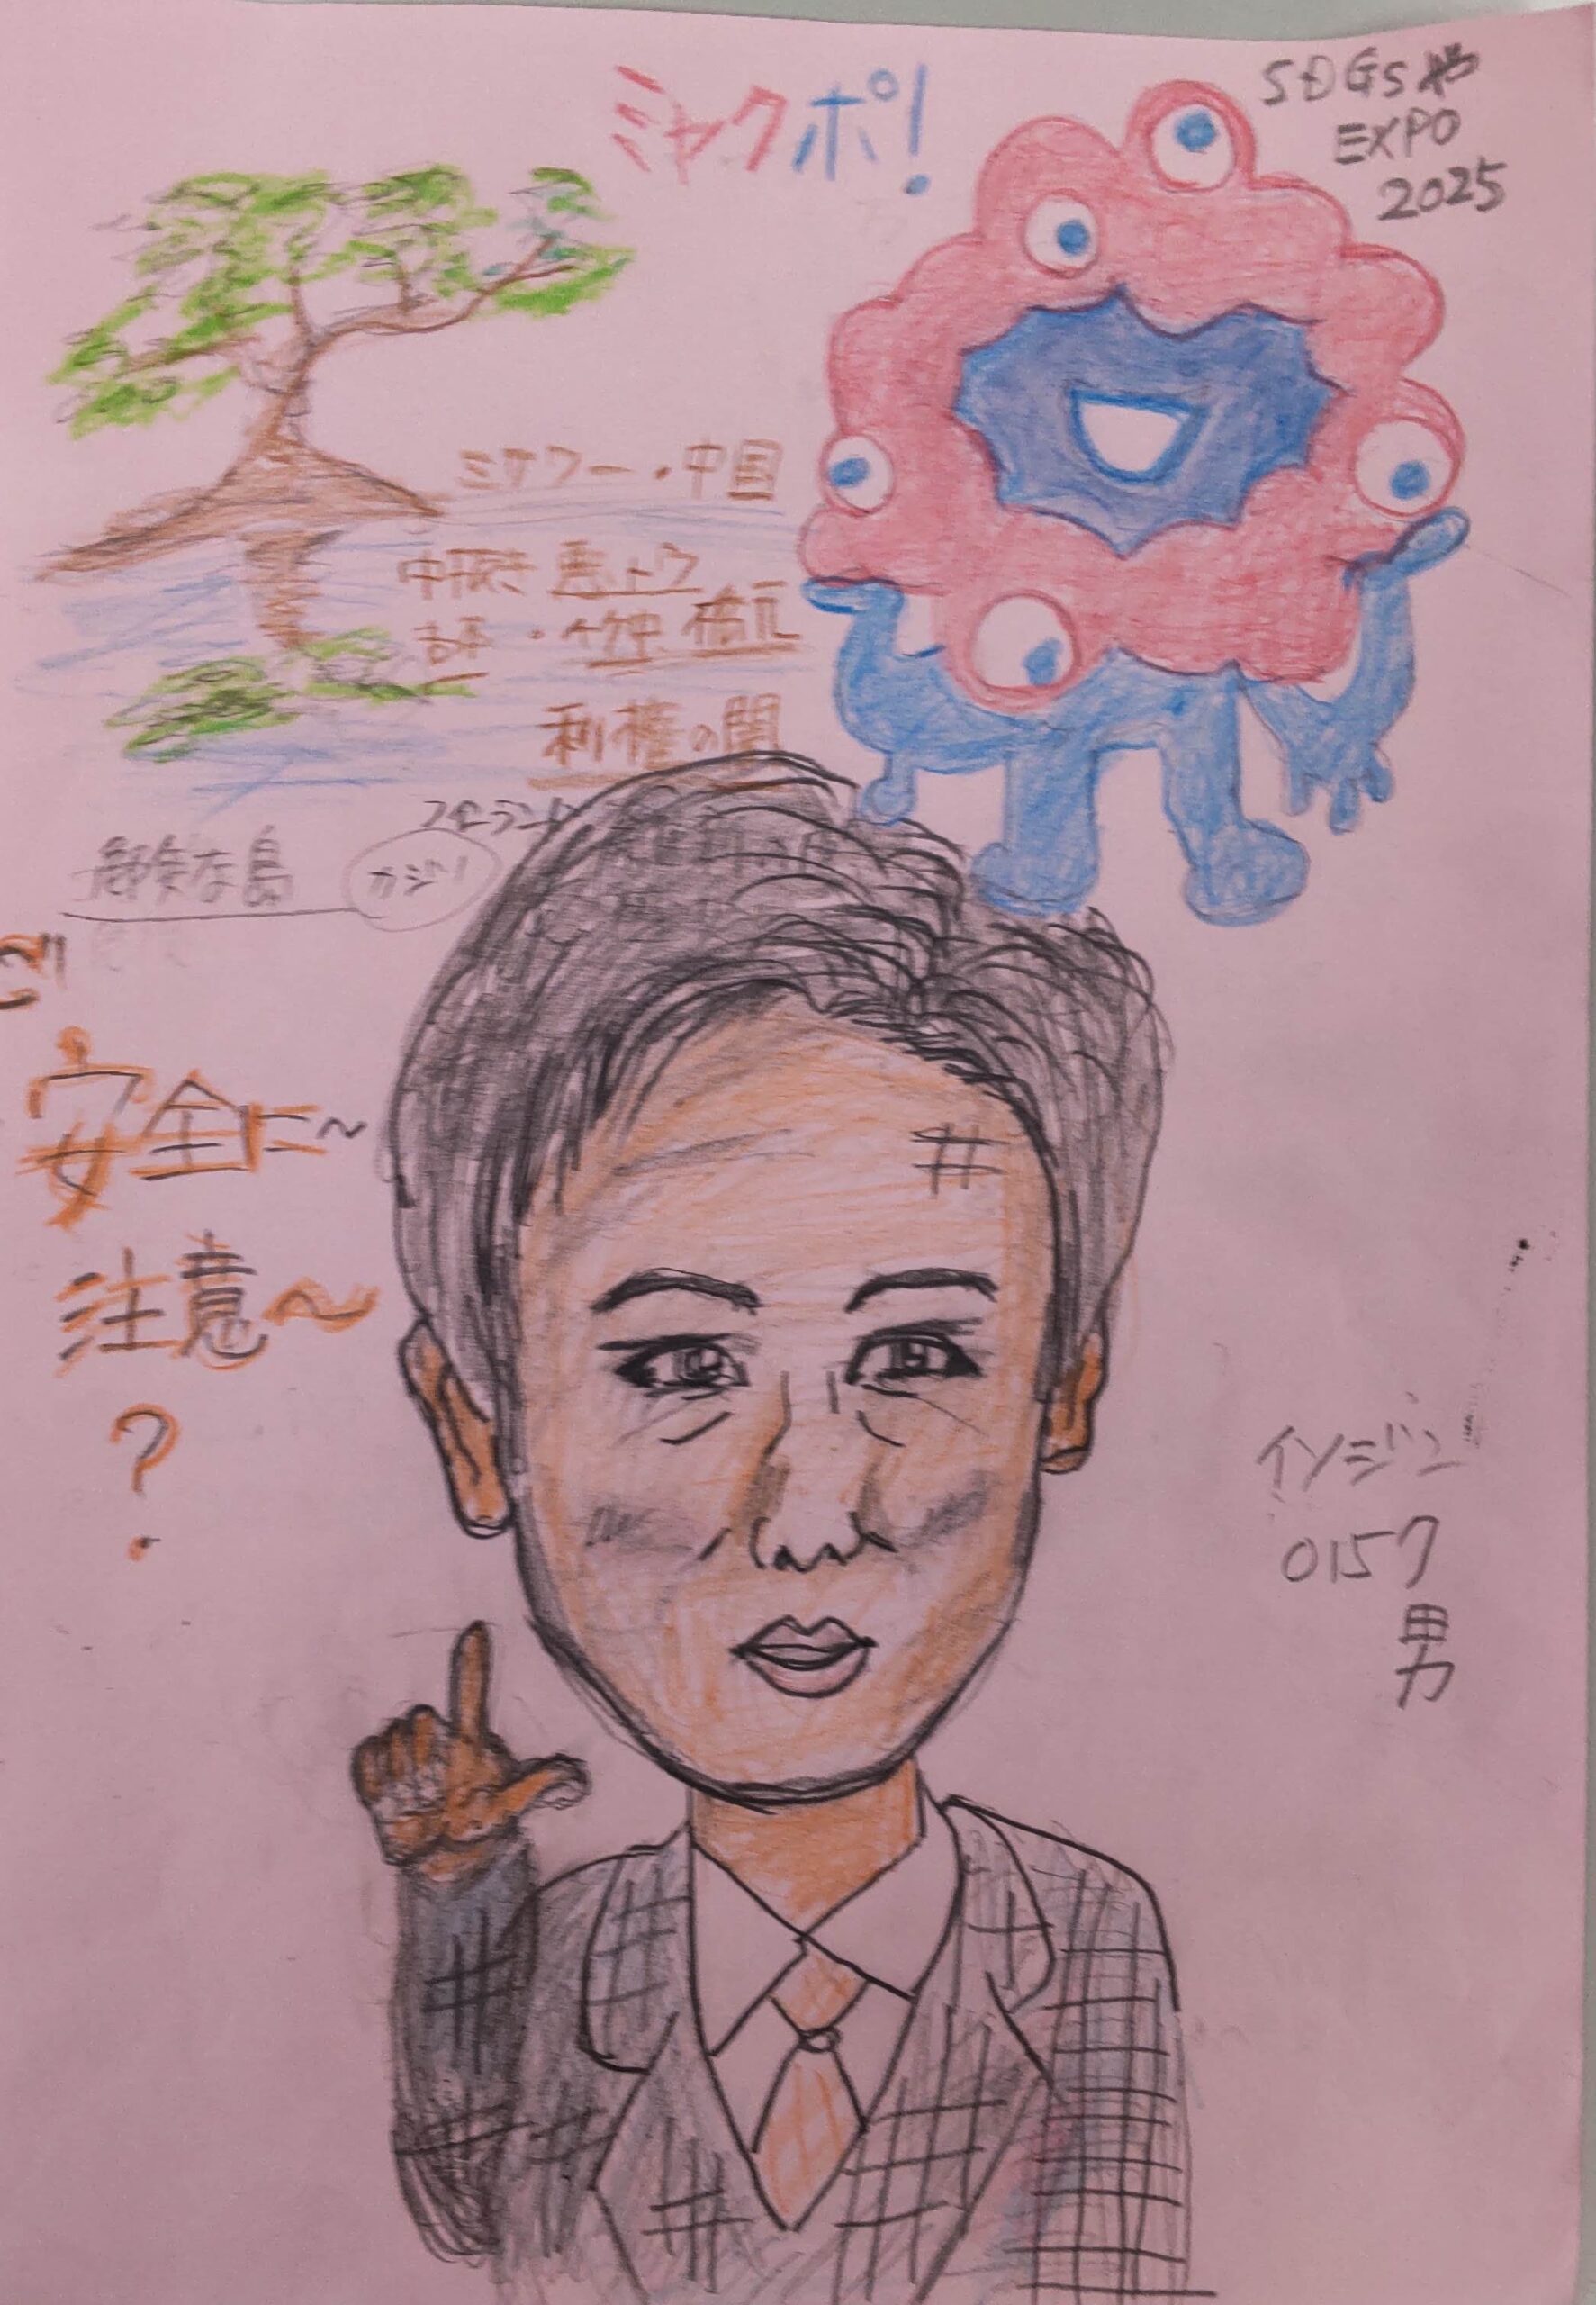 ミャクポ!
SDGsや
EXPO
2025
ミサワー・中国
中抜き 馬上ウ
・竹中 橋下
利権の闇
な島
カジノ
ご
安全に～
注意～
?
イソジン
015ク
男